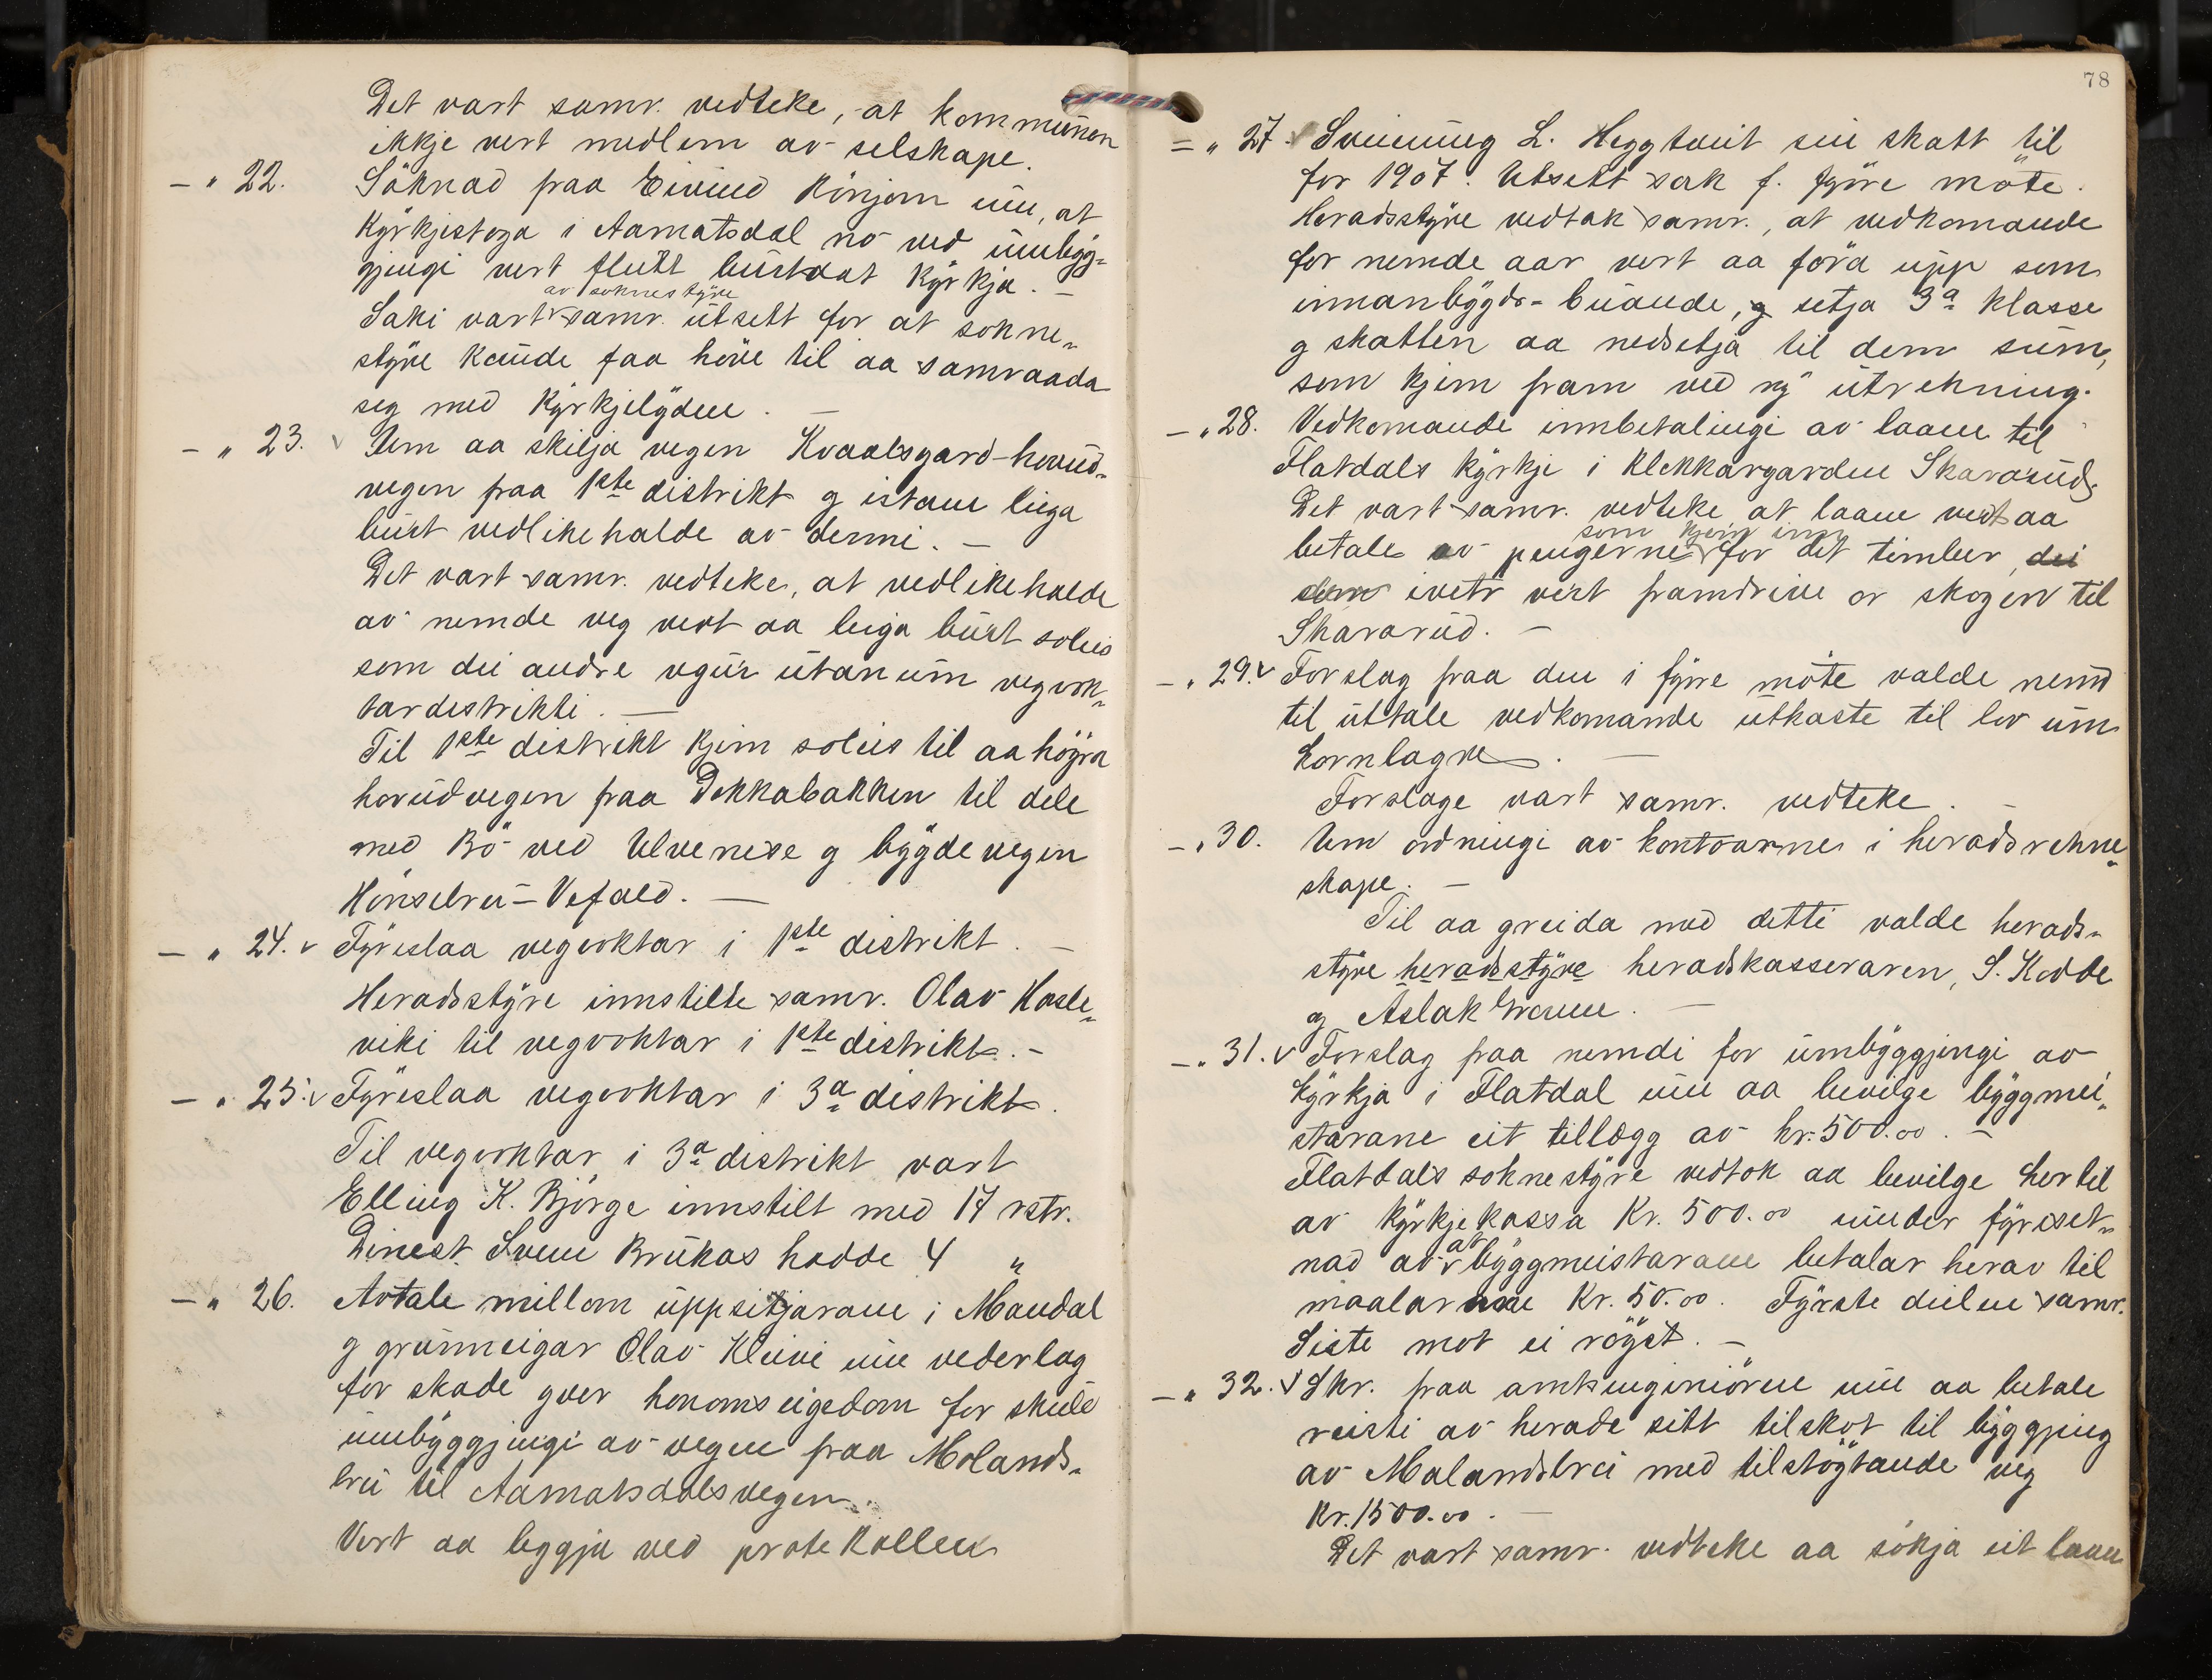 Det vart samr. vedteke, at kommunen
ikkje vert medlem av selskape.
– " 22. Söknad fraa Eivind Könjom um, at
Kyrkjestoga i Aamatsdal no ved umbyg=
gjingi vert flutt burtdat Kyrkja. –
av soknestyre
Saki vart samr. utsett for at sokne„
styre kunde faa höve til aa samraada
seg med Kyrkjelyden. –
– " 23. v Um aa skilja vegen Kvaalsgard-hovud„
vegen fraa 1ste distrikt g istaen leiga
burt vedlikehalde av denni. –
Det vart samr. vedteke, at vedlikehalde
av nemde veg vert aa leiga burt soleis
som dei andre vgur utanum vegvok„
tardistrikti. –
Til 1ste distrikt kjem soleis til aa höyra
hovudvegen fraa Dokkabakken til dele
med Bö ved Ulvenese g bygdevegen
Hönsebru – Vefald. –
– " 24. v Fyreslaa vegvoktar i 1ste distrikt. –
Heradsstyre innstilte samr. Olav Hasle„
viki til vegvoktar i 1ste distrikt. –
– " 25. v Fyreslaa vegvoktar i 3a distrikt.
Til vegvoktar i 3a distrikt vart
Elling K. Bjørge innstilt med 17 rstr.
Dinest. Svein Brukås hadde 4 "
– " 26. Avtale millom uppsitjarane i Mandal
g grunneigar Olav Kleivi um vederlag
for skade yver honoms eigedom for skuld
umbyggjingi av vegen fraa Molands„
bru til Aamatsdalsvegen.
Vert aa leggja ved protokollen
78
= " 27. v Sveinung L. Heggtveit sin skatt til
for 1907. Utsett sak f. fyrre möte.
Heradsstyre vedtok samr., at vedkomande
for nemde aar vert aa föra upp som
innanbygds-buande, g setja 3a klasse
g skatten aa nedsetja til dem sum,
som kjem fram ved ny utrekning.
– " 28. Vedkomande innbetalingi av laane til
Flatdals kyrkje i Klokkargarden Skavarud.
Det vart samr. vedteke at laane vert aa
som kjem inn
betale av pengerne for det timber, dei
dem ivetr vert framdrive or skogen til
Skavarud. –
– " 29. v Forslag fraa den i fyrre möte valde nemd
til uttale vedkomande utkaste til lov um
kornlagre. –
Forslage vart samr. vedteke. –
– " 30. Um ordningi av kontoarne i heradsrekne„
skape. –
Til aa greida med detti valde herads„
styre heradsstyre heradskasseraren, S. Kodde
og Aslak Graue. –
– " 31. v Forslag fraa nemdi for umbyggjingi av
kyrkja i Flatdal um aa bevilge byggmei„
starane eit tillægg av kr. 500.00. –
Flatdals soknestyre vedtok aa bevilge hertil
av kyrkjekassa Kr. 500.00 under fyreset„
at
nad av byggmeistarane betalar herav til
maalarane Kr. 50.00. Fyrste deilen samr.
Siste mot ei röyst. –
– " 32. v Skr. fraa amtsingeniören um aa betale
reisti av herade sitt tilskot til byggjing
av Malandsbrui med tilstöytande veg
Kr. 1500.00. –
Det vart samr. vedteke aa sökja eit laan